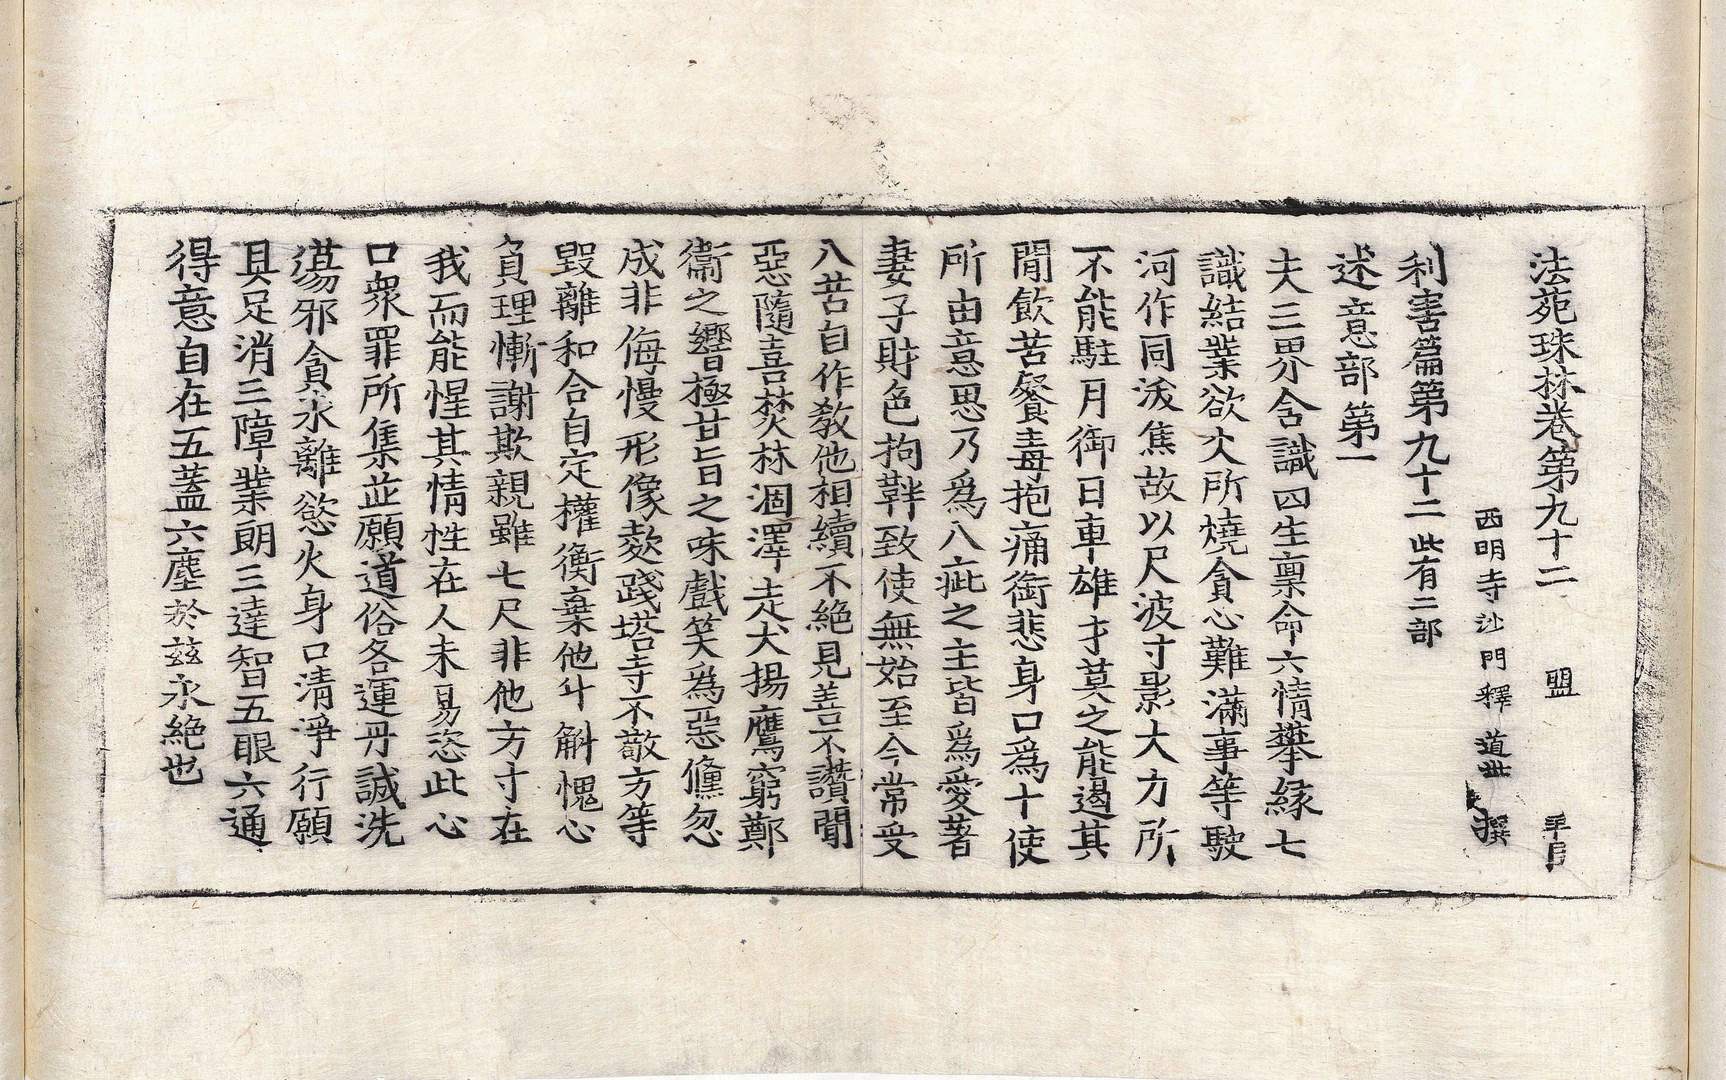 法苑珠林卷第九十二 盟
西明寺沙門釋 道世 撰
利害篇第九十二 此有二部
述意部第一
夫三界含識四生稟命六情攀緣七
識結業欲火所燒貪心難滿事等駛
河作同沃焦故以尺波寸影大力所
不能駐月御日車雄才莫之能遏其
閒飲苦飡毒抱痛銜悲身口爲十使
所由意思乃爲八疵之主皆爲愛著
妻子財色拘靽致使無始至今常受
八苦自作敎他相續不絕見善不讚聞
惡隨喜焚林涸澤走犬揚鷹窮鄭
衞之響極甘旨之味戲笑爲惡儵忽
成非侮慢形像凌踐塔寺不敬方等
毀離和合自定權衡棄他斗斛愧心
負理慚謝欺親雖七尺非他方寸在
我而能惺其情性在人未易恣此心
口衆罪所集並願道俗各運丹誠洗
蕩邪貪永離慾火身口清淨行願
具足消三障業朗三達智五眼六通
得意自在五蓋六塵於茲永絕也